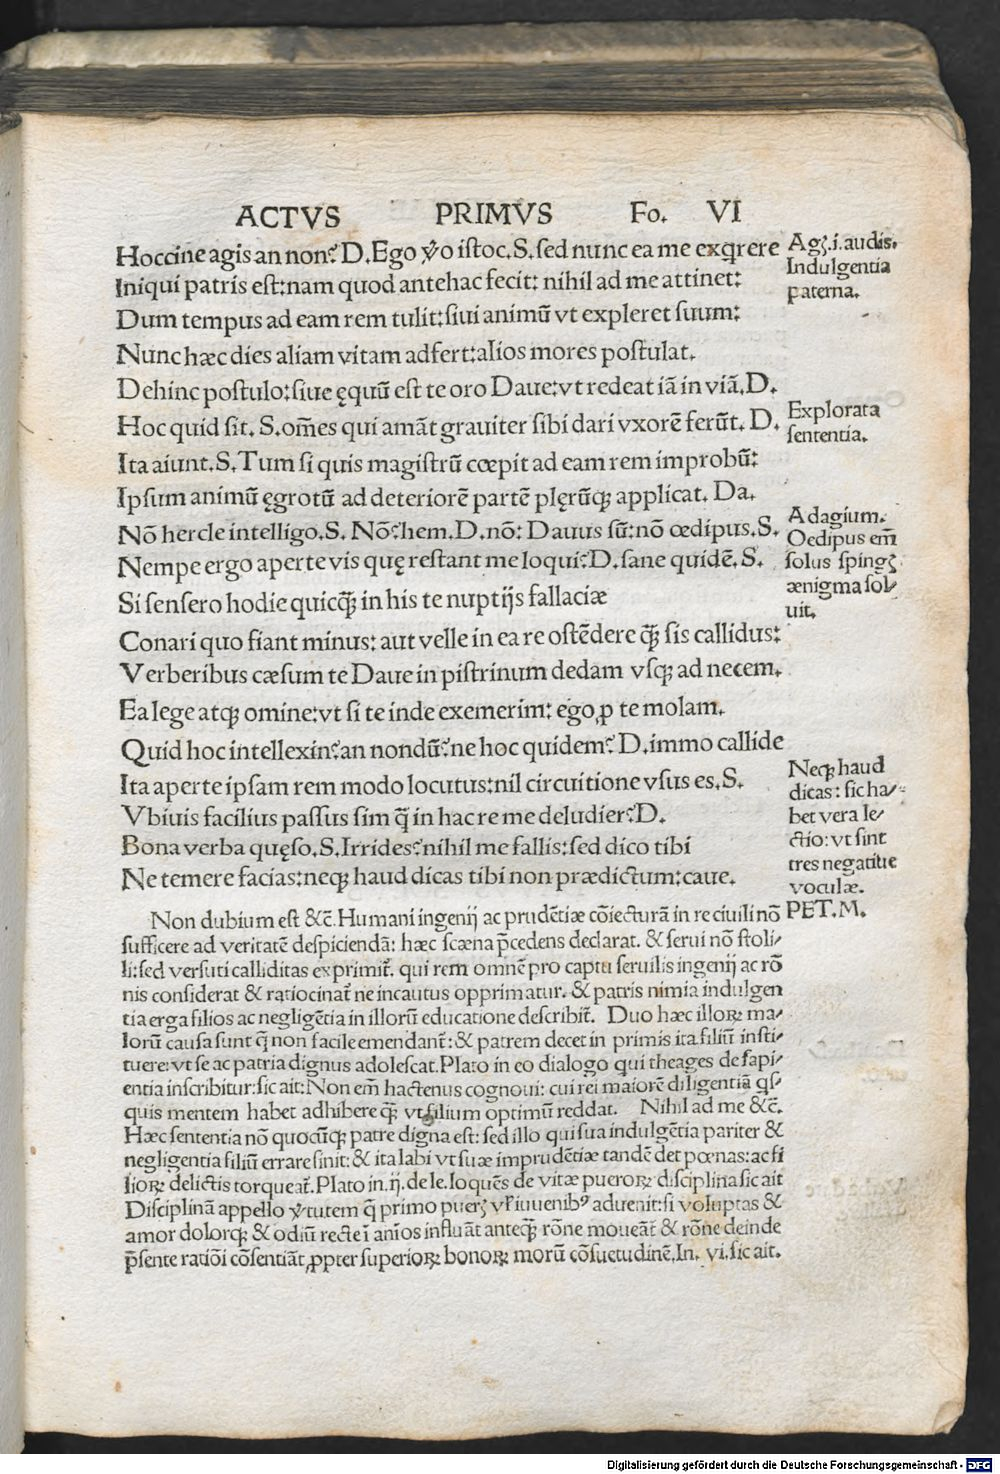 ACTVS PRIMVS Fo. VI
Hoccine agis an non? D. Ego ṽo istoc. S. sed nunc ea me exq̇rere
Iniqui patris est: nam quod antehac fecit: nihil ad me attinet:
Dum tempus ad eam rem tulit: siui animũ vt expleret suum:
Nunc hæc dies aliam vitam adfert: alios mores postulat.
Dehinc postulo: siue ęquũ est te oro Daue: vt redeat iã in viã. D.
Hoc quid sit. S. om̃es qui amãt grauiter sibi dari vxorẽ ferũt. D.
Ita aiunt. S. Tum si quis magistrũ cœpit ad eam rem improbũ:
Ipsum animũ ęgrotũ ad deteriorẽ partẽ plęrũq; applicat. Da.
Nõ hercle intelligo. S. Nõ? hem. D. nõ: Dauus sũ: nõ œdipus. S.
Nempe ergo aperte vis quę restant me loqui? D. sane quidẽ. S.
Si sensero hodie quicq̃; in his te nuptijs fallaciæ
Conari quo fiant minus: aut velle in ea re ostẽdere q̃; sis callidus:
Verberibus cæsum te Daue in pistrinum dedam vsq; ad necem.
Ea lege atq; omine: vt si te inde exemerim: ego ꝓ te molam.
Quid hoc intellexin? an nondũ? ne hoc quidem? D. immo callide
Ita aperte ipsam rem modo locutus: nil circuitione vsus es. S.
Vbiuis facilius passus sim q̃ in hac re me deludier? D.
Bona verba quęso. S. Irrides? nihil me fallis: sed dico tibi
Ne temere facias: neq; haud dicas tibi non prædictum: caue.
Agꝫ .i. audis.
Indulgentia
paterna.
Explorata
sententia.
Adagium.
Oedipus em̃
solus spingꝫ
ænigma sol/
uit.
Neq; haud
dicas: sic ha/
bet vera le/
ctio: vt sint
tres negatiue
voculæ.
PET. M.
Non dubium est &c̃. Humani ingenij ac prudẽtiæ cõiecturã in re ciuili nõ
sufficere ad veritatẽ despiciendã: hæc scæna p̃cedens declarat. & serui nõ stoli/
li: sed versuti calliditas exprimit̃. qui rem omnẽ pro captu seruilis ingenij ac rõ
nis considerat & ratiocinat̃ ne incautus opprimatur. & patris nimia indulgen
tia erga filios ac negligẽtia in illorũ educatione describit̃. Duo hæc illoꝝ ma/
lorũ causa sunt q̃ non facile emendant̃: & patrem decet in primis ita filiũ insti/
tuere: vt se ac patria dignus adolescat. Plato in eo dialogo qui theages de sapi/
entia inscribitur: sic ait: Non em̃ hactenus cognoui: cui rei maiorẽ diligentiã qs̃/
quis mentem habet adhibere q̃; vt filium optimũ reddat. Nihil ad me &c̃.
Hæc sententia nõ quocũq; patre digna est: sed illo qui sua indulgẽtia pariter &
negligentia filiũ errare sinit: & ita labi vt suæ imprudẽtiæ tandẽ det pœnas: ac fi
lioꝝ delictis torqueat̃. Plato in .ij. de le. loquẽs de vitæ pueroꝝ disciplina sic ait
Disciplinã appello ṽtutem q̃ primo puerꝫ vr̃ iuuenibꝰ aduenit: si voluptas &
amor dolorq; & odiũ recte ĩ anĩos influãt anteq̃; rõne moueãt & rõne deinde
p̃sente ratiõi cõsentiãt, ꝓpter superioꝝ bonoꝝ morũ cõsuetudinẽ. In. vi. sic ait.
Digitalisierung gefördert durch die Deutsche Forschungsgemeinschaft - DFG